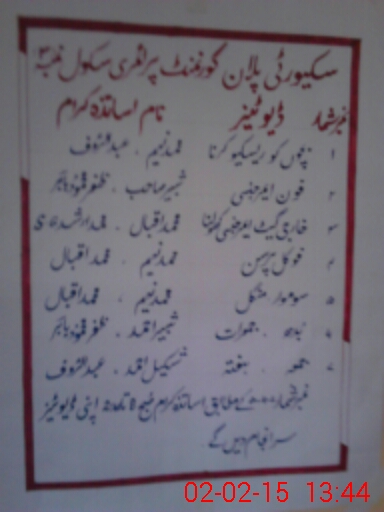 سکیورٹی پلان گورنمنٹ پرائمری سکول نمبر ۳
نمبر شمار ڈیوٹیز نام اساتذہ کرام
۱ بچوں کو ریسکیو کرنا محمد نعیم ۔ عبدالرؤف
۲ فون ایمرجنسی شبیر صاحب ۔ ظفر
۳ خارجی گیٹ ایمرجنسی کھولنا محمد اقبال ۔ محمد ارشد
۴ فوکل پرسن محمد نعیم ۔ محمد اقبال
۵ سوموار ۔ منگل محمد نعیم ۔ محمد اقبال
۶ بدھ ۔ جمعرات شبیر احمد ۔ ظفر
۷ جمعہ ۔ ہفتہ شکیل احمد ۔ عبدالرؤف
نمبر شمار کے مطابق اساتذہ کرام صبح تا اپنی ڈیوٹیز
سرانجام دیں گے
02-02-15 13:44